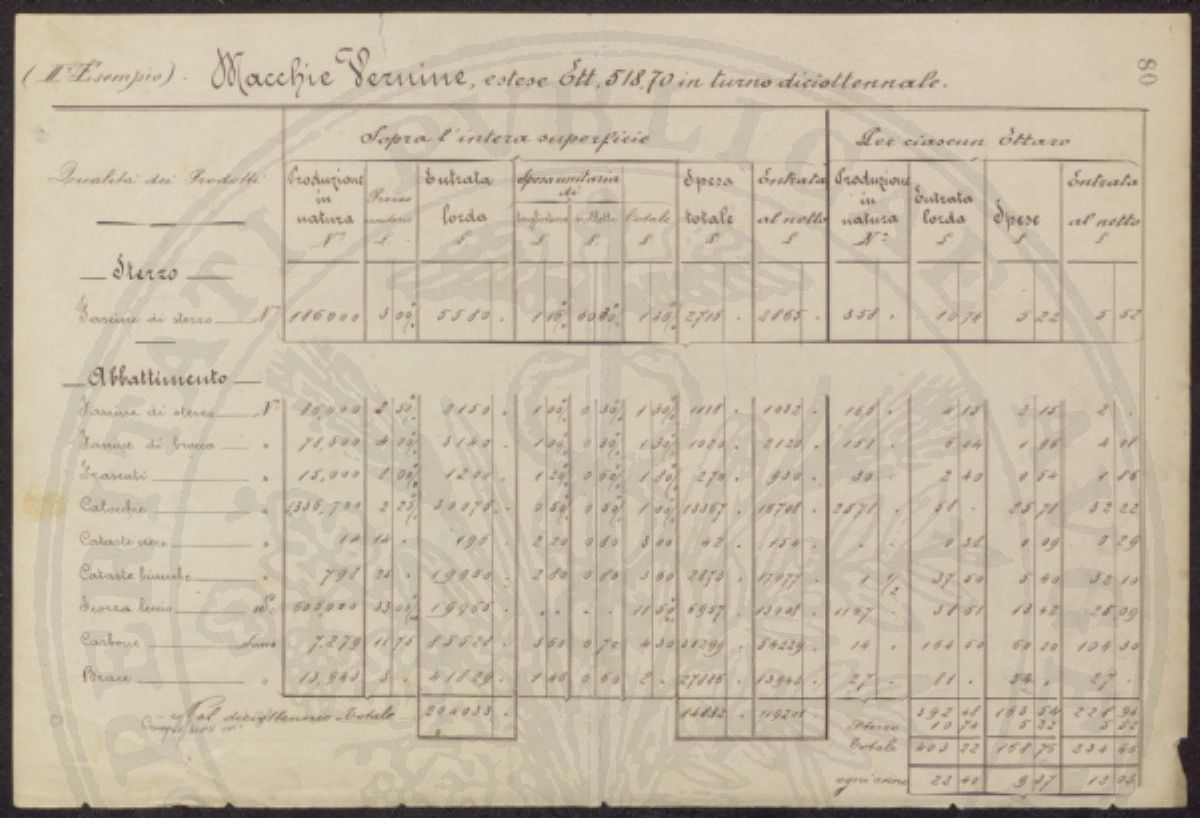 80
(II° Esempio). Macchie Vernine, estese Ett. 518,70 in turno diciottennale.
Qualità dei Prodotti
Sopra l'intera superficie
Per ciascun Ettaro
Produzione in natura N°
Prezzo unitario £
Entrata lorda £
Spesa unitaria di
tagliatura £
Totale £
Spesa totale £
Entrata al netto £
Produzione in natura N°
Entrata lorda £
Spese £
Entrata al netto £
Sterzo
Fascine di sterzo N° 186000 3 00 5580 . 1 16 1 2715 . 2865 . 358 . 10 74 5 22 5 52
Abbattimento
Fascine di sterzo N° 2 50 2150 . 1 00 0 30 1 30 1118 . 1032 . 4 15 2 15 2 .
Fascine di brocca " 78,500 4 00 3140 . 1 00 0 30 1 30 1020 . 2120 . 151 . 6 04 1 96 4 08
Frascati " 15,000 1200 . 1 20 0 60 270 . 930 . 2 40 0 54 1 86
Calocchie " 1,336,700 2 25 30075 . 0 50 0 50 1 00 13367 . 16708 . 2578 . 58 . 25 78 32 22
Cataste nere " 14 14 . 196 . 2 20 0 80 3 00 42 . 154 . . . 0 38 0 09 0 29
Cataste bianche " 798 25 . 19950 . 2 80 0 80 2873 . 17077 . 1 1/2 37 50 5 40 32 10
Scorza leccio 33 00 . . . . 11 50 6957 . 13008 . 1167 . 38 51 13 42 25 09
Carbone Some 7,279 11 75 85528 . 3 60 0 70 4 30 31299 . 54229 . 14 . 164 50 60 20 104 30
Brace " 13,943 3 . 41829 . 1 40 0 60 2 . 27886 . 13943 . 27 . 81 . 54 . 27 .
Nel diciottennio Totale 119205 .
392 48 163 54 228 94
Sterzo 10 74 5 22 5 52
Totale 403 22 168 76 234 46
ogni anno 22 40 9 37 13 03